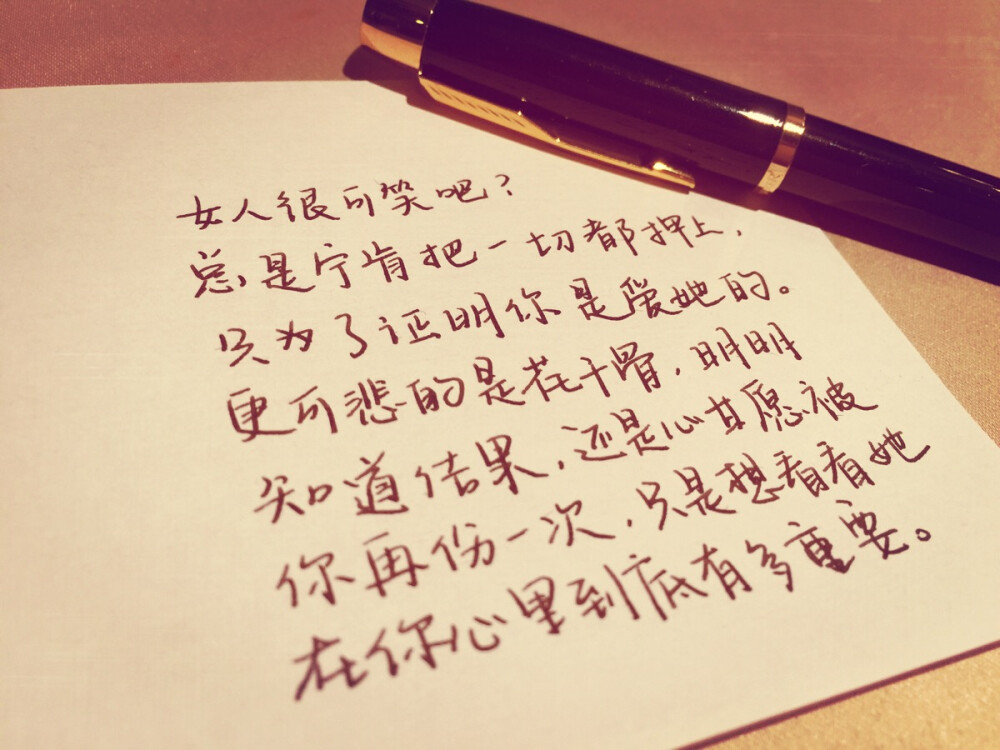 女人很可笑吧?
总是宁肯把一切都押上,
只为了证明你是爱她的。
更可悲的是花千骨,明明
知道结果,还是心甘愿被
你再份一次,只是想看看她
在你心里到底有多重要。